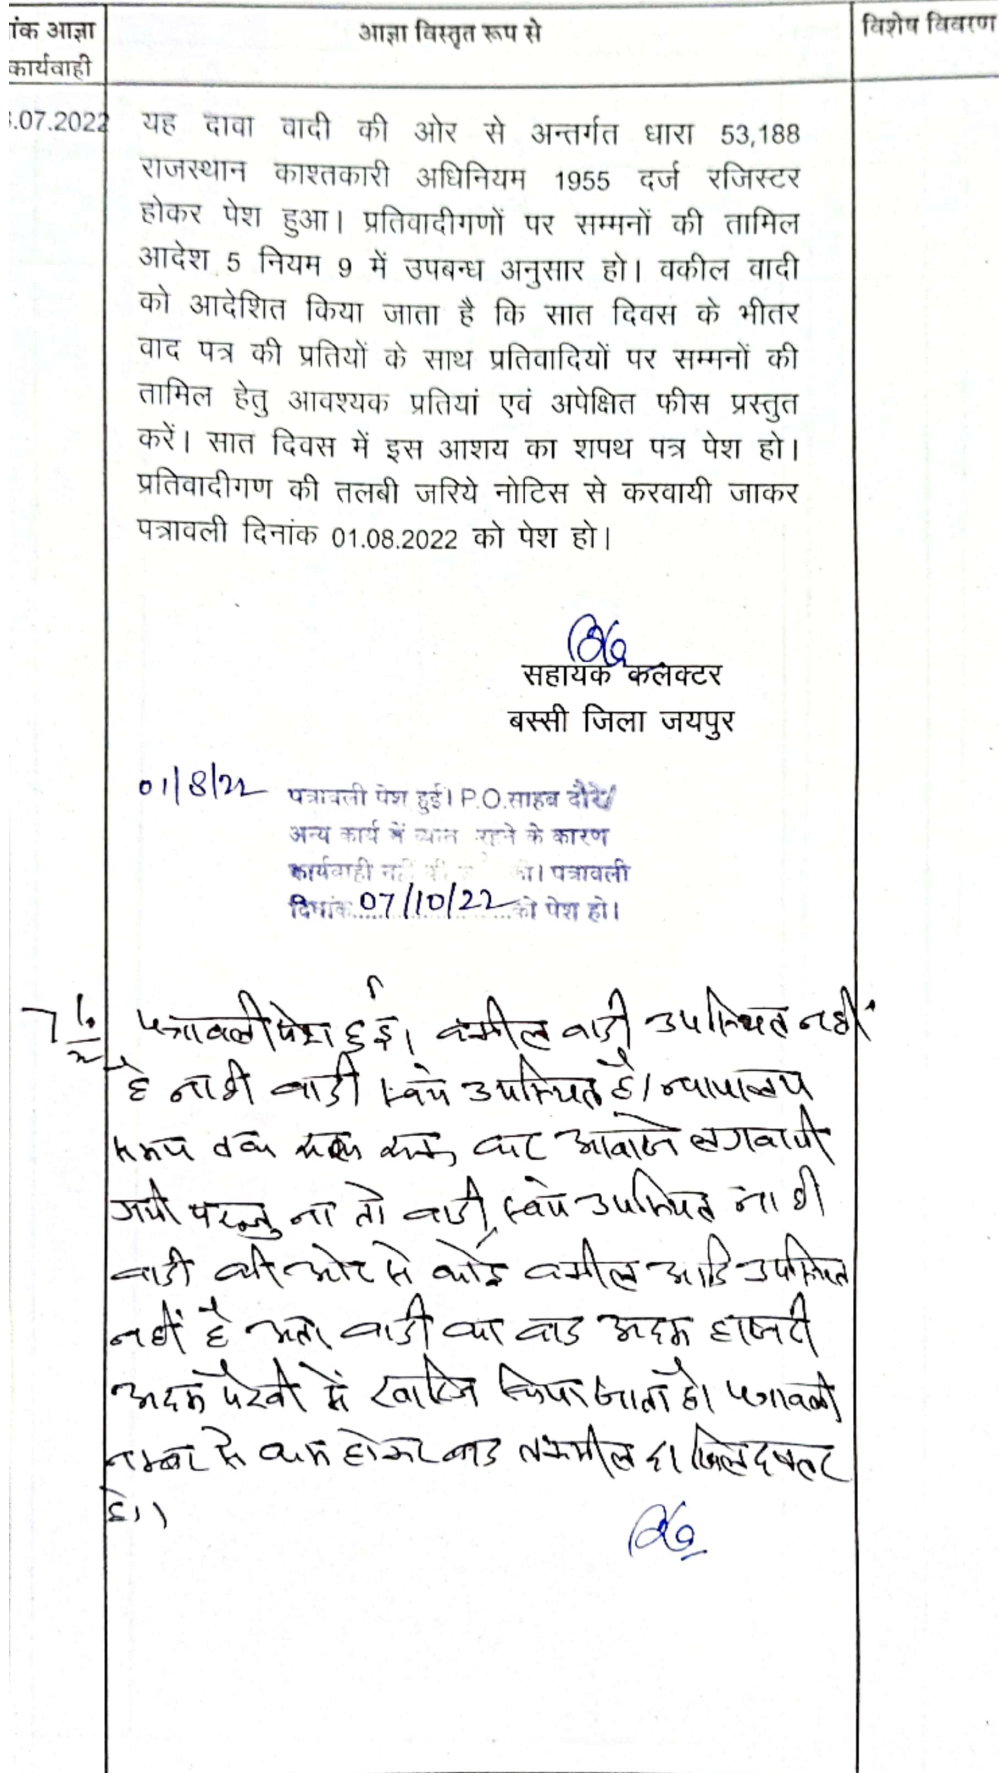 ांक आज्ञा
कार्यवाही
आज्ञा विस्तृत रूप से
विशेष विवरण
.07.2022
यह दावा वादी की ओर से अन्तर्गत धारा 53,188
राजस्थान काश्तकारी अधिनियम 1955 दर्ज रजिस्टर
होकर पेश हुआ। प्रतिवादीगणों पर सम्मनों की तामिल
आदेश 5 नियम 9 में उपबन्ध अनुसार हो। वकील वादी
को आदेशित किया जाता है कि सात दिवस के भीतर
वाद पत्र की प्रतियों के साथ प्रतिवादियों पर सम्मनों की
तामिल हेतु आवश्यक प्रतियां एवं अपेक्षित फीस प्रस्तुत
करें। सात दिवस में इस आशय का शपथ पत्र पेश हो।
प्रतिवादीगण की तलबी जरिये नोटिस से करवायी जाकर
पत्रावली दिनांक 01.08.2022 को पेश हो।
सहायक कलेक्टर
बस्सी जिला जयपुर
01/8/22
पत्रावली पेश हुई। P.O.साहब दौरे/
अन्य कार्य में व्यस्त रहने के कारण
कार्यवाही नही की की। पत्रावली
दिनांक 07/10/22 को पेश हो।
पत्रावली पेश हुई। वकील वादी उपस्थित नहीं
है ना ही वादी स्वंय उपस्थित है। न्यायालय
समय तक बार आवाजे लगवायी
गयी परन्तु ना तो वादी स्वंय उपस्थित ना ही
वादी की ओर से कोई वकील आदि उपस्थित
नहीं है अतः वादी का वाद अदम हाजरी
अदम पैरवी में खारिज किया जाता है। पत्रावली
नम्बर से कम होकर बाद तकमील दाखिल दफ्तर
हो।